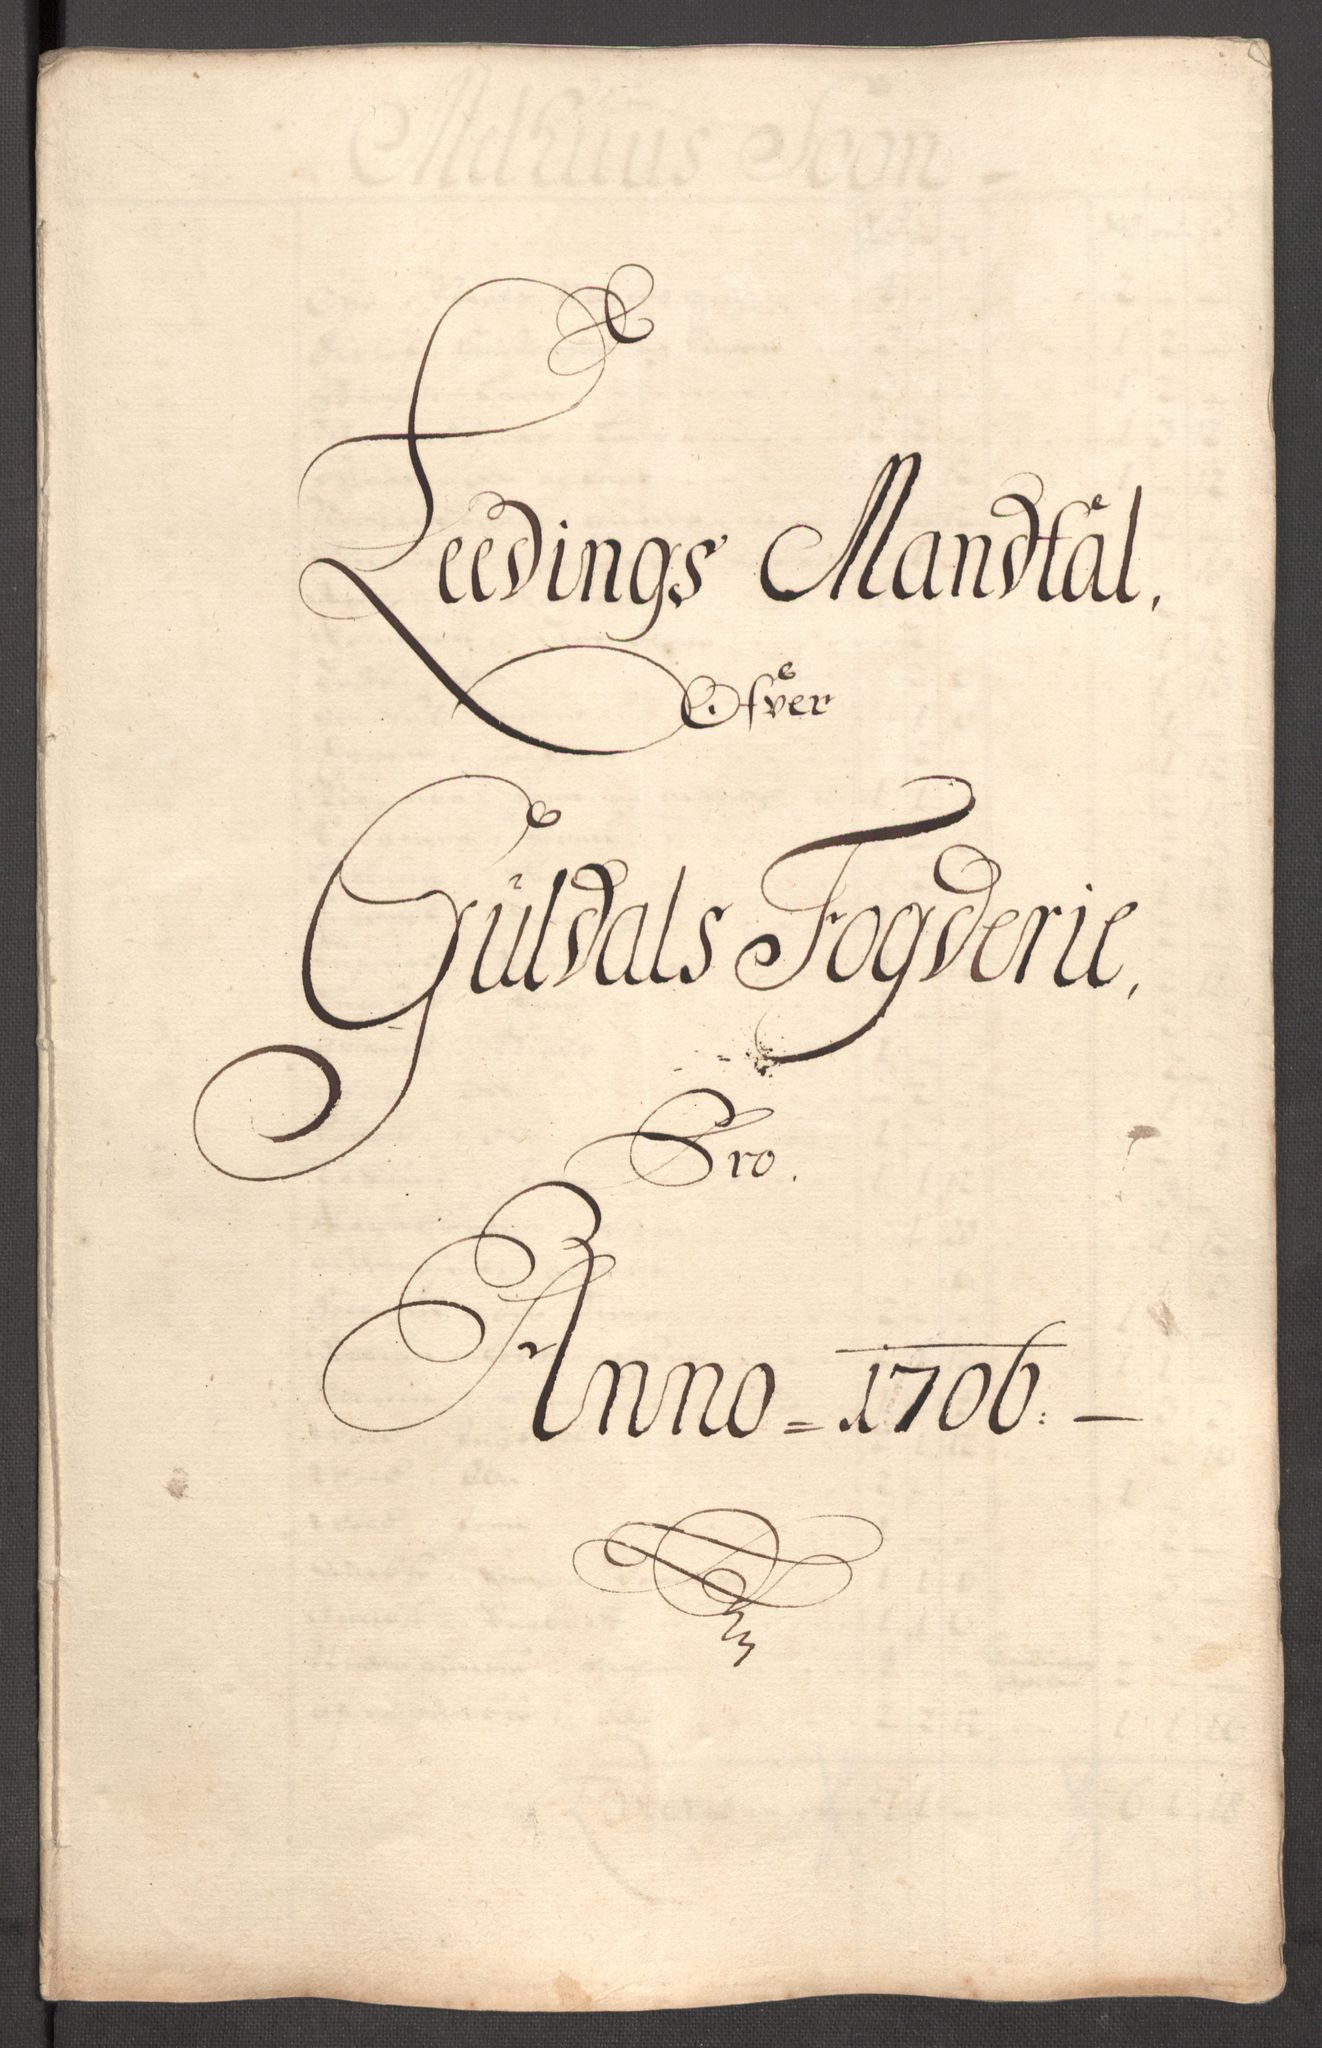 Leedings Mandtål.
Ofver
Gŭldals Fogderie,
Pro.
Anno = 1706. —